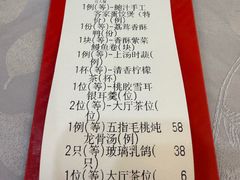 1例(等)-鲍汁手工
客家蛋饺煲(特
价)(例)
1份(等)-荔茸香酥
鸭(份)
1块(等)-香酥紫菜
鳗鱼卷(块)
1例(等)-上汤时蔬(
例)
1杯(等)-清香柠檬
茶(杯)
1位(等)-桃胶雪耳
银耳羹(位)
2位(等)-大厅茶位(
位)
1例(等)五指毛桃炖 58
龙骨汤(例)
2只(等)玻璃乳鸽( 38
只)
1位(等)大厅茶位( 6